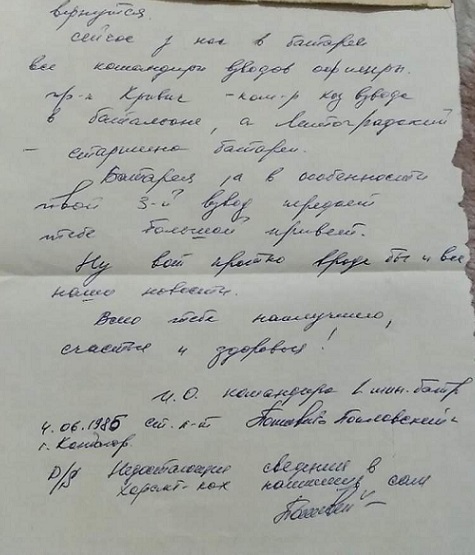 вернутся.
Сейчас у нас в батарее
все командиры взводов офицеры.
пр-к Кривис - ком-р хоз взвода
в батальоне, а
- старшина батареи.
Батарея, а в особенности
твой 3-й взвод передаёт
тебе большой привет.
Ну вот кратко вроде бы и все
наши новости.
Всего тебе наилучшего,
счастья и здоровья!
И.О. командира 1 мин. батр
4.06.1986 ст. л-т
г.
Недостающие сведения в
характ-ках напишешь сам